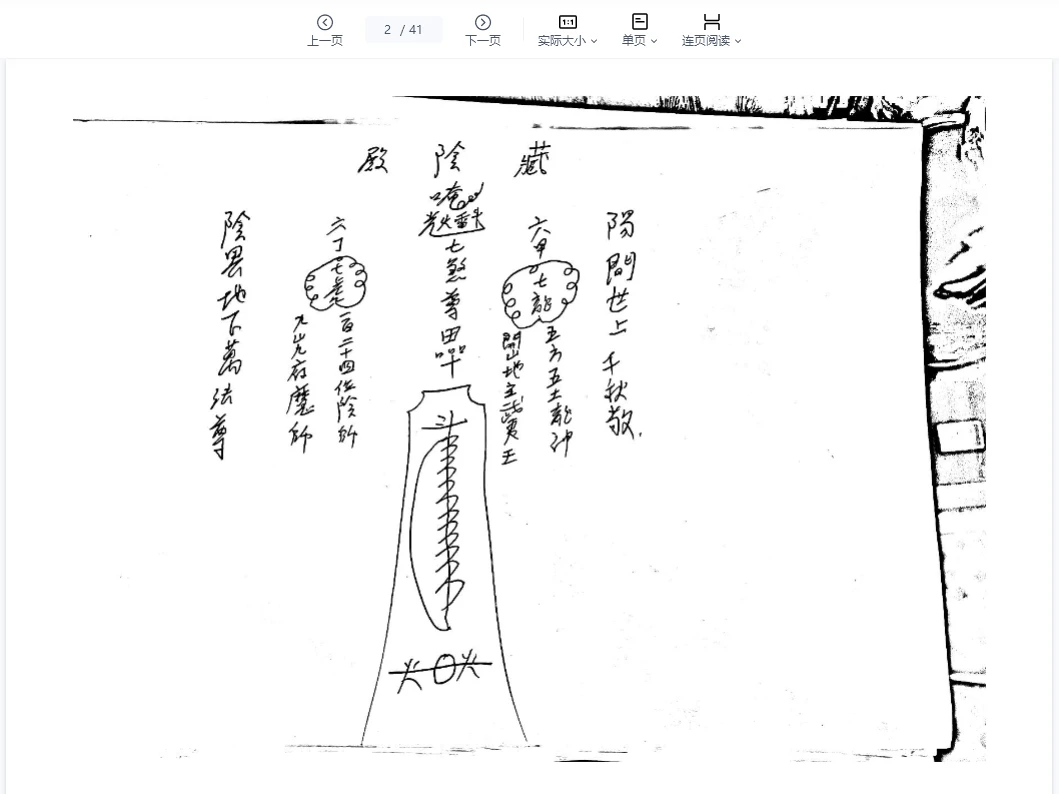 上一页
2 / 41
下一页
实际大小
单页
连页阅读
藏陰殿
陽間世上千秋敬
六甲
七龍
五方五土龍神
開山地主武夷王
唵
七煞尊
六丁
一百二十四位陰師
府魔師
陰界地下萬法尊
斗
火 火